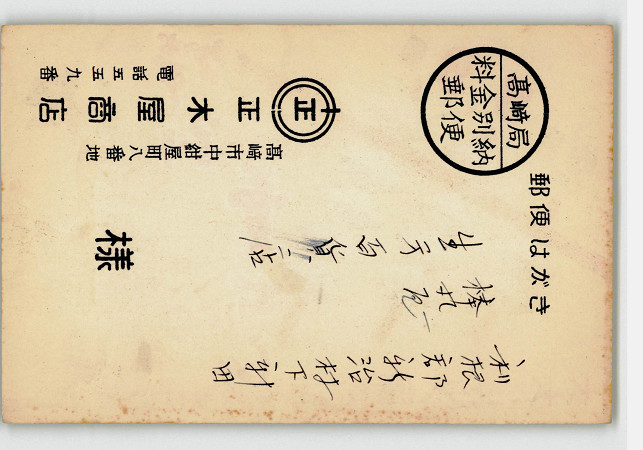 郵便はがき
髙崎局
料金別納
郵便
利根郡新治村下新田
生方百貨店
様
髙崎市中紺屋町八番地
正
正木屋商店
電話五五九番